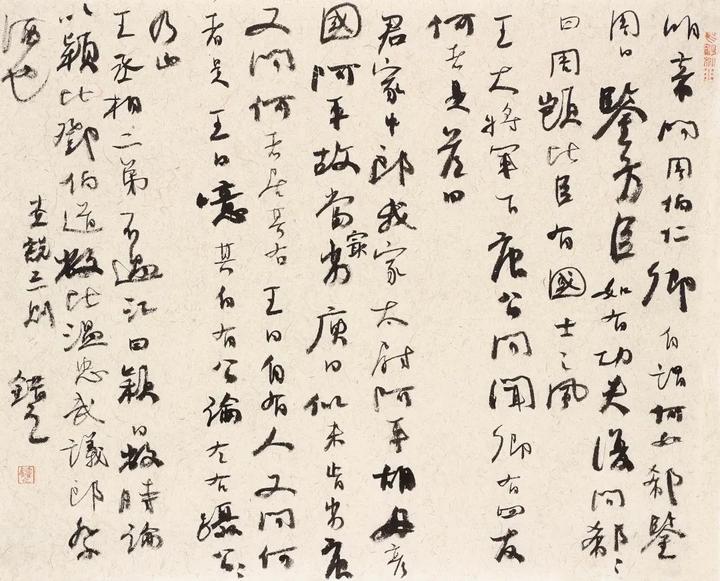 明帝問周伯仁卿自謂何如郗鑒
周曰鑒方臣如有功夫復問郗〻
曰周顗比臣有國士門風
王大將軍下庾公問聞卿有四友
何者是答曰
君家中郎我家太尉阿平胡毋彥
國阿平故當最劣庾曰似未肯劣庾
又問何者居其右王曰自有人又問何
者是王曰噫其自有公論左右躡公〻
乃止
王丞相二弟不過江曰穎曰敞時論
以穎比鄧伯道敞比溫忠武議郎祭
酒也
世說三則